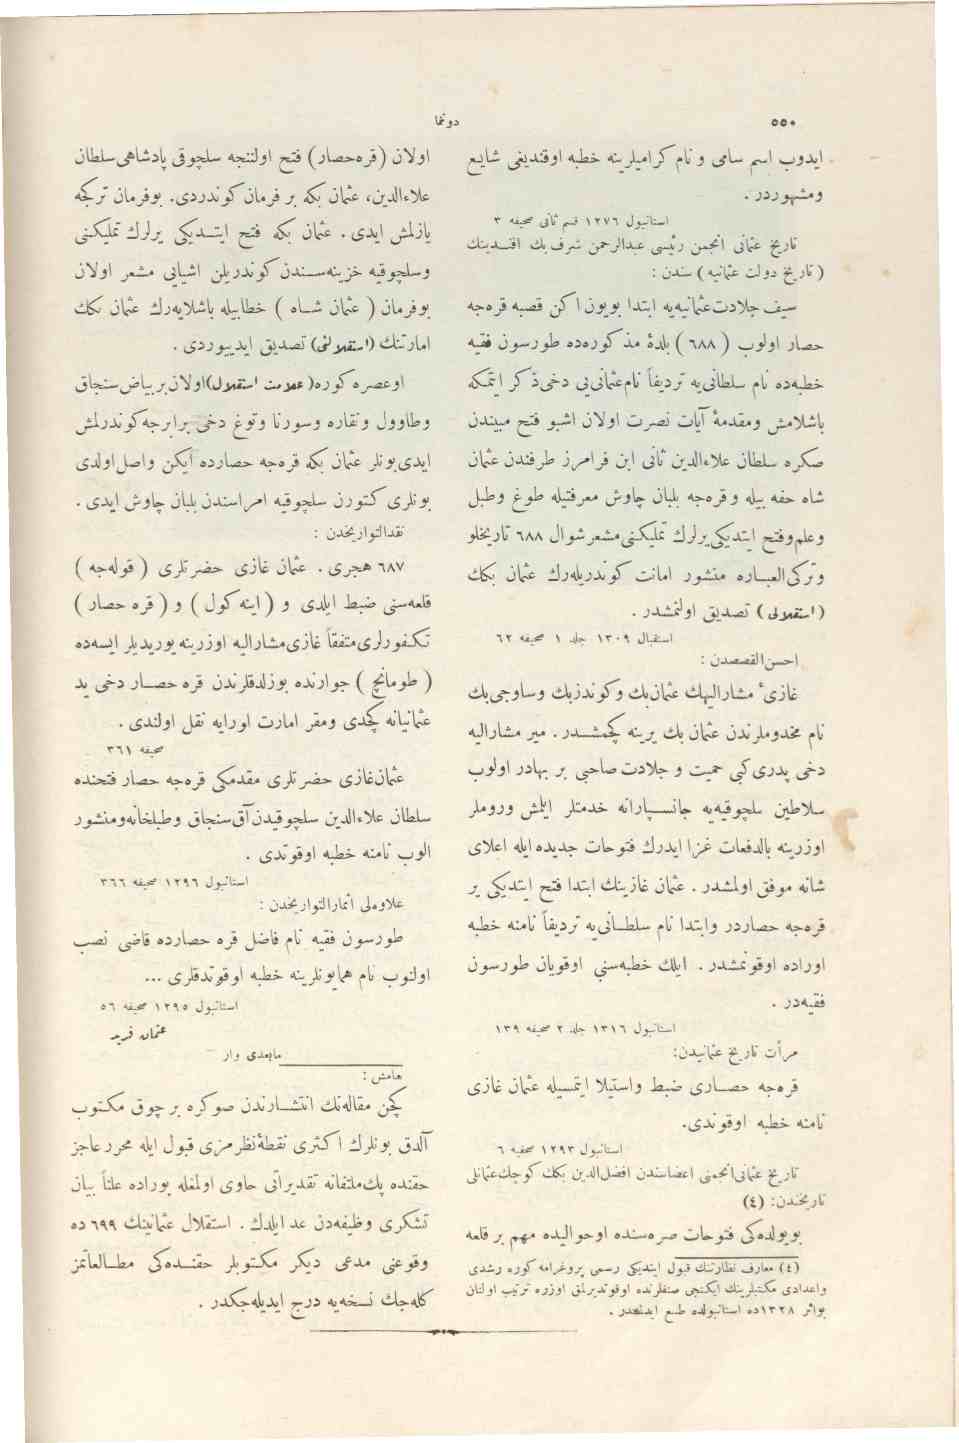 ٥٥٠
دونما
ایدوب اسم سامی و نام کرامیلرینه خطبه اوقندیغی شایع
ومشهوردر .
استانبول ١٢٧٦ قسم ثانی صحیفه ٣
تاریخ عثمانی انجمن رئیسی عبدالرحمن شرف بك افندینك
( تاریخ دولت عثمانیه ) سندن :
سیف جلادت عثمانیه‌یه ابتدا بویون اکن قصبه قره‌جه
حصار اولوب ( ٦٨٨ ) بلدهٔ مذکوره‌ده طورسون فقیه
خطبه‌ده نام سلطانی‌یه تردیفاً نام عثمانی‌یی دخی ذکر ایتمکه
باشلامش ومقدمهٔ آیات نصرت اولان اشبو فتح مبیندن
صکره سلطان علاءالدین ثانی ابن فرامرز طرفندن عثمان
شاه حفه بیله وقره‌جه بلبان چاوش معرفتیله طوغ وطبل
وعلم وفتح ایتدیکی یرلرك تملیکنی مشعر شوال ٦٨٨ تاریخلو
وترکی العباره منشور امانت کوندریله‌رك عثمان بکك
( استقلالی ) تصدیق اولنمشدر .
استقبال ١٣٠٩ جلد ١ صحیفه ٦٢
احسن القصصدن :
غازیٔ مشارالیهك عثمان بك وکوندزبك وساوجی بك
نام مخدوملرندن عثمان بك یرینه کچمشدر . میر مشارالیه
دخی پدری کبی حمیت و جلادت صاحبی بر بهادر اولوب
سلاطین سلجوقیه‌یه جانسپارانه خدمتلر ایلمش وروملر
اوزرینه بالدفعات غزا ایدرك فتوحات جدیده ایله اعلای
شانه موفق اولمشدر . عثمان غازینك ابتدا فتح ایتدیکی یر
قره‌جه حصاردر وابتدا نام سلطانی‌یه تردیفاً نامنه خطبه
اوراده اوقونمشدر . ایلك خطبه‌سنی اوقویان طورسون
فقیه‌در .
استانبول ١٣١٦ جلد ٢ صحیفه ١٣٩
مرأت تاریخ عثمانیدن:
قره‌جه حصاری ضبط واستیلا ایتمسیله عثمان غازی
نامنه خطبه اوقوندی.
استانبول ١٢٩٣ صحیفه ٦
تاریخ عثمانی انجمنی اعضاسندن افضل الدین بکك کوچك عثمانلی
تاریخندن: (٤)
بویولده‌کی فتوحات صره‌سنده اوحوالیده مهم بر قلعه
(٤) معارف نظارتنك قبول ایتدیکی رسمی پروغرامه کوره رشدی
واعدادی مکتبلرینك ایکنجی صنفلرنده اوقوتدیرلمق اوزره ترتیب اولنان
بواثر ١٣٢٨ده استانبولده طبع ایدلمجدر .
اولان (قره‌حصار) فتح اولننجه سلچوقی پادشاهی سلطان
علاءالدین، عثمان بکه بر فرمان کوندردی. بوفرمان ترکجه
یازلمش ایدی . عثمان بکه فتح ایتدیکی یرلرك تملیکنی
وسلچوقیه خزینه‌سندن کوندریلن اشیایی مشعر اولان
بوفرمان ( عثمان شاه ) خطابیله باشلایه‌رك عثمان بکك
امارتنك (استقلالنی) تصدیق ایدییوردی .
اوعصره کوره (علامت استقلال) اولان بر بیاض سنجاق
وطاوول ونقاره وسورنا وتوغ دخی برابرجه کوندرلمش
ایدی بونلر عثمان بکه قره‌جه حصارده ایکن واصل اولدی
بونلری کتورن سلچوقیه امراسندن بلبان چاوش ایدی .
نقدالتواریخدن :
٦٨٧ هجری . عثمان غازی حضرتلری ( قوله‌جه )
قلعه‌سنی ضبط ایلدی و ( اینه کول ) و ( قره حصار )
تکفورلری متفقاً غازی مشارالیه اوزرینه یوریدیلر ایسه‌ده
( طومانچ ) جوارنده بوزلدقلرندن قره حصار دخی ید
عثمانیانه کچدی ومقر امارت اورایه نقل اولندی .
صحیفه ٣٦١
عثمان غازی حضرتلری مقدمکی قره‌جه حصار فتحنده
سلطان علاءالدین سلچوقیدن آق سنجاق وطبلخانه ومنشور
الوب نامنه خطبه اوقوتدی .
استانبول ١٢٩٦ صحیفه ٣٦٦
علاوه‌لی اثمارالتواریخدن :
طورسون فقیه نام فاضل قره حصارده قاضی نصب
اولنوب نام همایونلرینه خطبه اوقوتدقلری ...
استانبول ١٢٩٥ صحیفه ٥٦
عثمان فرید
مابعدی وار
هامش :
کچن مقاله‌نك انتشارندن صوکره بر چوق مکتوب
آلدق بونلرك اکثری نقطهٔ نظرمزی قبول ایله محرر عاجز
حقنده پك ملتفانه تقدیراتی حاوی اولمغله بوراده علناً بیان
تشکری وظیفه‌دن عد ایلدك . استقلال عثمانینك ٦٩٩ ده
وقوعنی مدعی دیکر مکتوبلر حقنده‌کی مطالعاتمز
کله‌جك نسخه‌یه درج ایدیله‌جکدر .